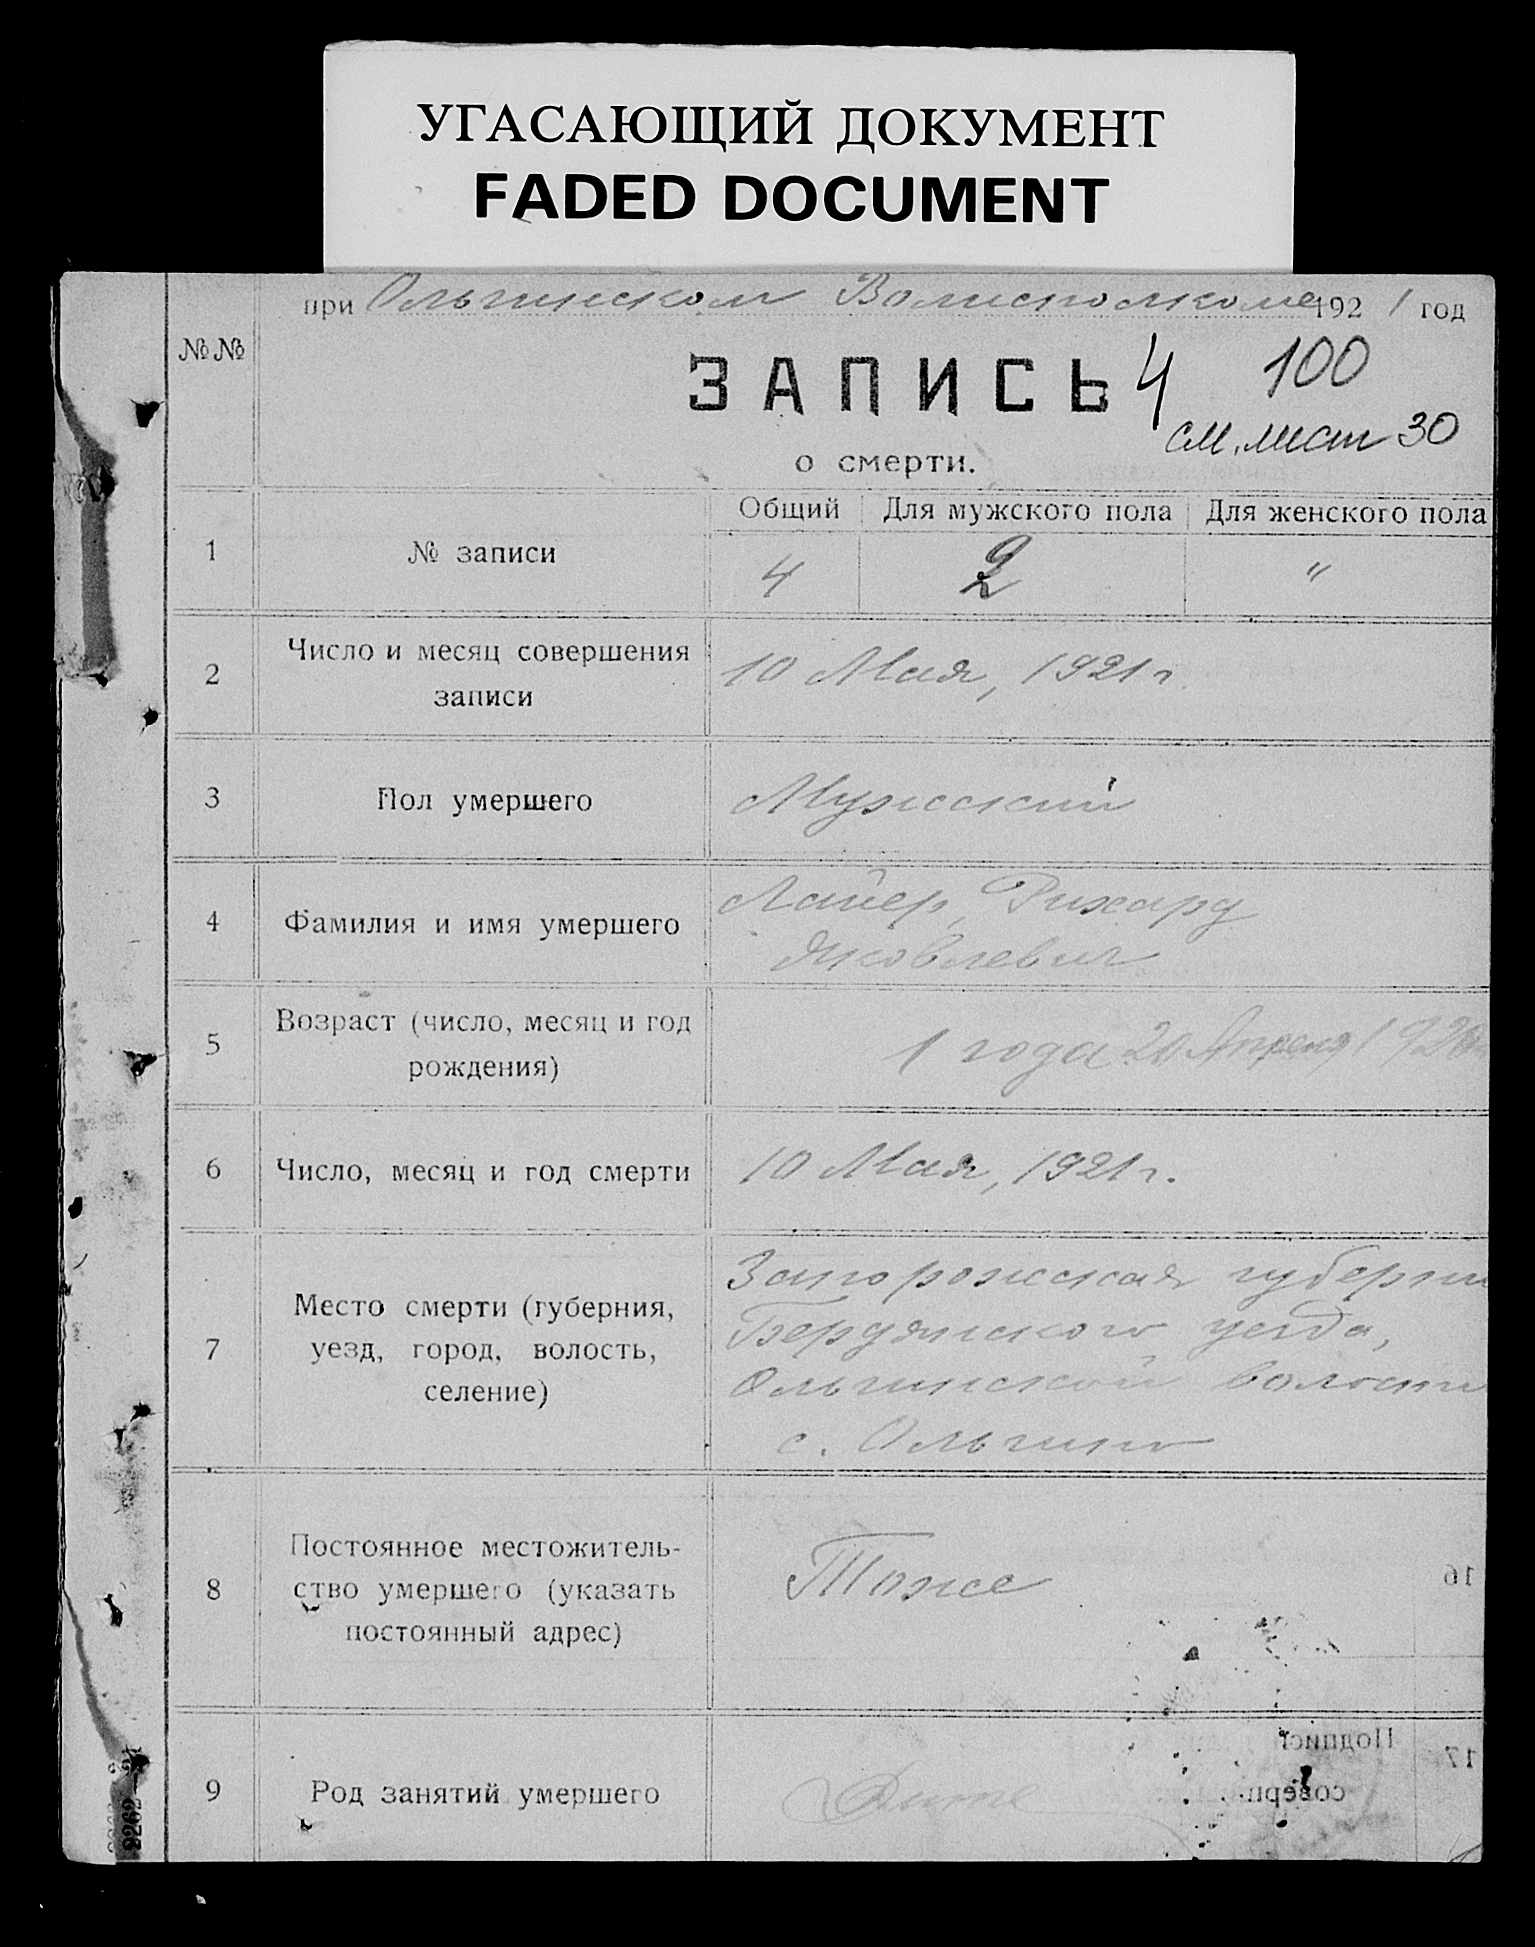 УГАСАЮЩИЙ ДОКУМЕНТ
FADED DOCUMENT
при Ольгинском Волисполкоме 1921 год
№№
ЗАПИСЬ 4 100
см. лист 30
о смерти.
Общий Для мужского пола Для женского пола
1 № записи 4 2 "
2 Число и месяц совершения
записи
10 Мая, 1921 г
3 Пол умершего Мужской
4 Фамилия и имя умершего
Лайер, Рихард
Яковлевич
5 Возраст (число, месяц и год
рождения)
1 года 20 Апреля 1920
6 Число, месяц и год смерти 10 Мая, 1921 г.
7 Место смерти (губерния,
уезд, город, волость,
селение)
Запорожская губерни
Бердянского уезда,
Ольгинской волости
с. Ольгино
8 Постоянное местожитель-
ство умершего (указать
постоянный адрес)
Тоже
16
Подпис
17
соверш
9 Род занятий умершего Дите
9262